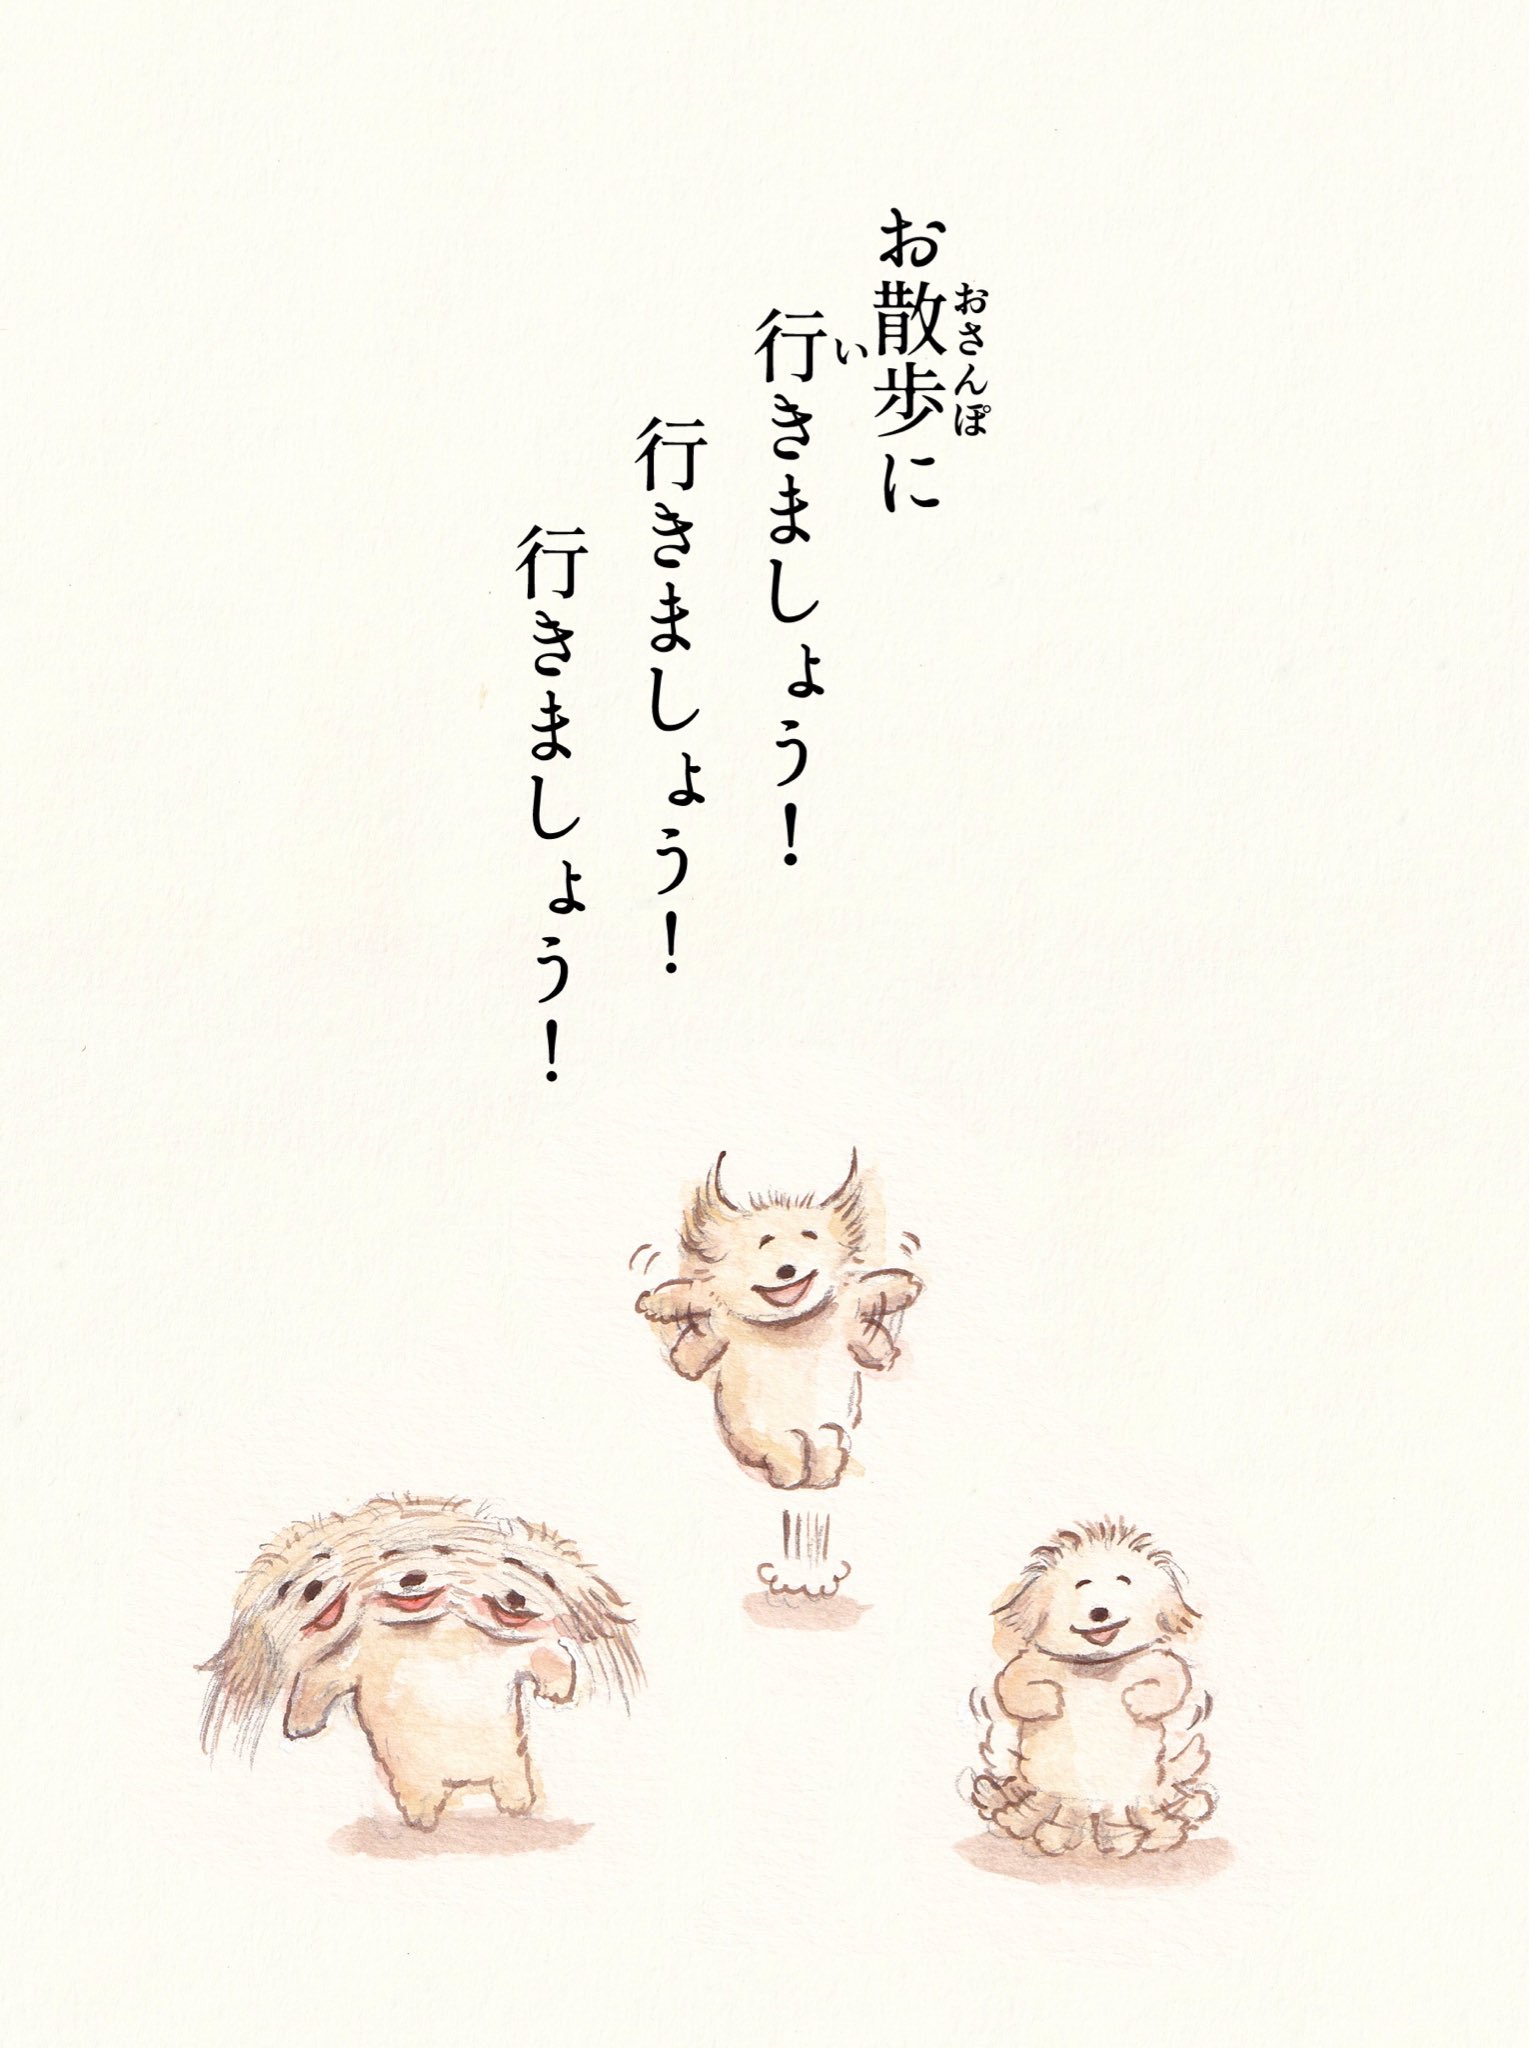 お散歩に
おさんぽ
行きましょう！
い
行きましょう！
行きましょう！